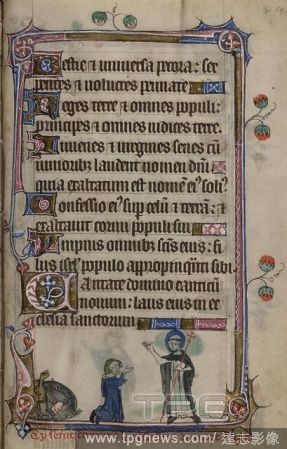 Bestie & universa pecora: ser
pentes & volucres pennate
Reges terre & omnes populi:
principes & omnes iudices terre.
Iuvenes & virgines senes cū
iunioribus laudent nomen dñi:
quia exaltatum est nomē ei⁹ soli⁹
Confessio ei⁹ sup celū & terrā: &
exaltavit cornu populi sui
Ympnus omnib₃ scīs eius: fi
liis isrl' populo appropinq̄nti sibi.
Cantate domino canticū
novum: laus eius in ec
clesia sanctorum
Cy seint
TPG
www.tpgnews.com/ 達志影像